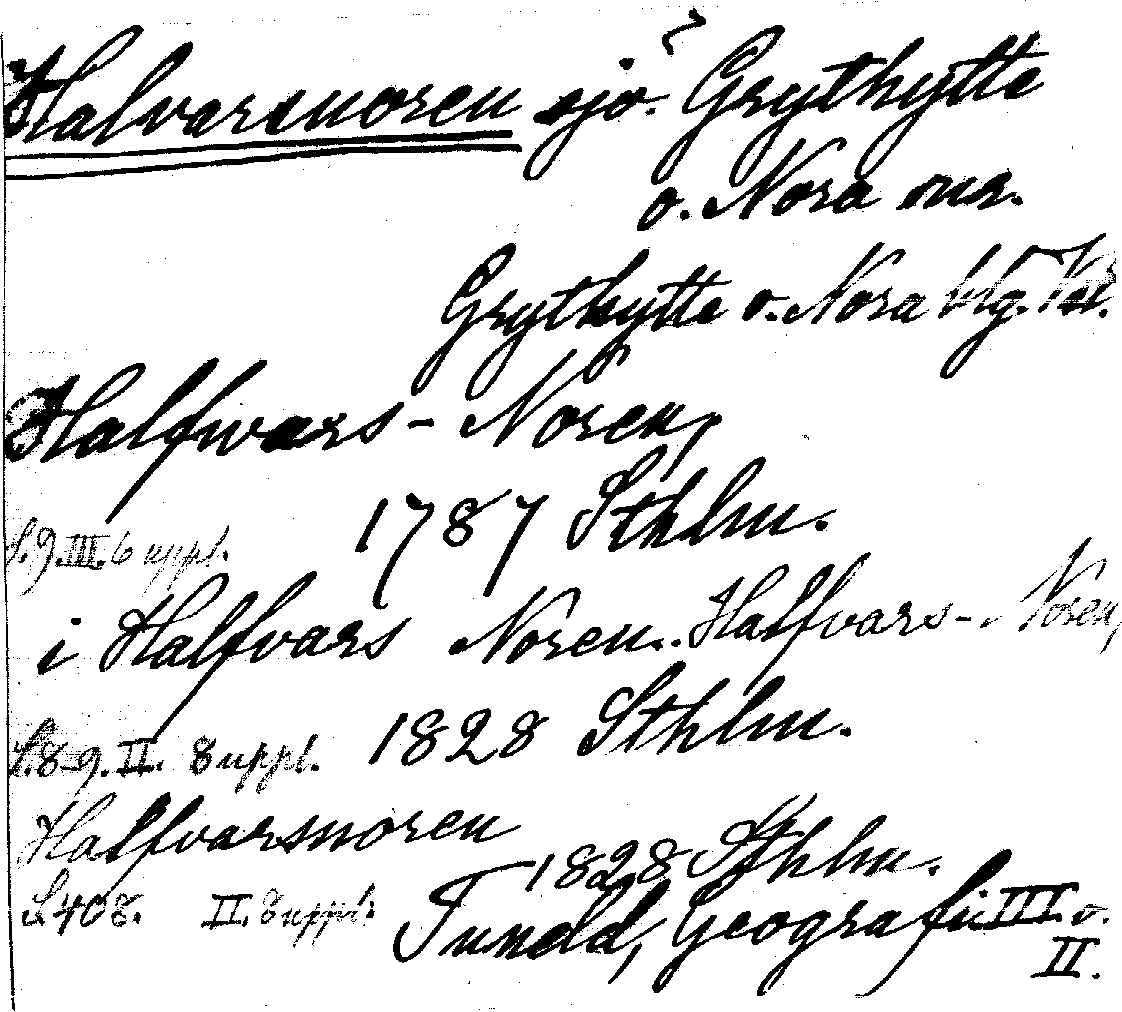 Halvarsnoren sjö. Grythytte
o. Nora sns.
Grythytte o. Nora blg. Vstl.
Halfwars-Noren,
1787 Sthlm.
S. 9. III. 6 uppl.
i Halfvars Noren.. Halfvars-Noren,
1828 Sthlm.
S. 8-9. II. 8 uppl.
Halfvarsnoren
1828 Sthlm.
S. 408. II. 8 uppl.
Tuneld, Geografi III. o.
II.